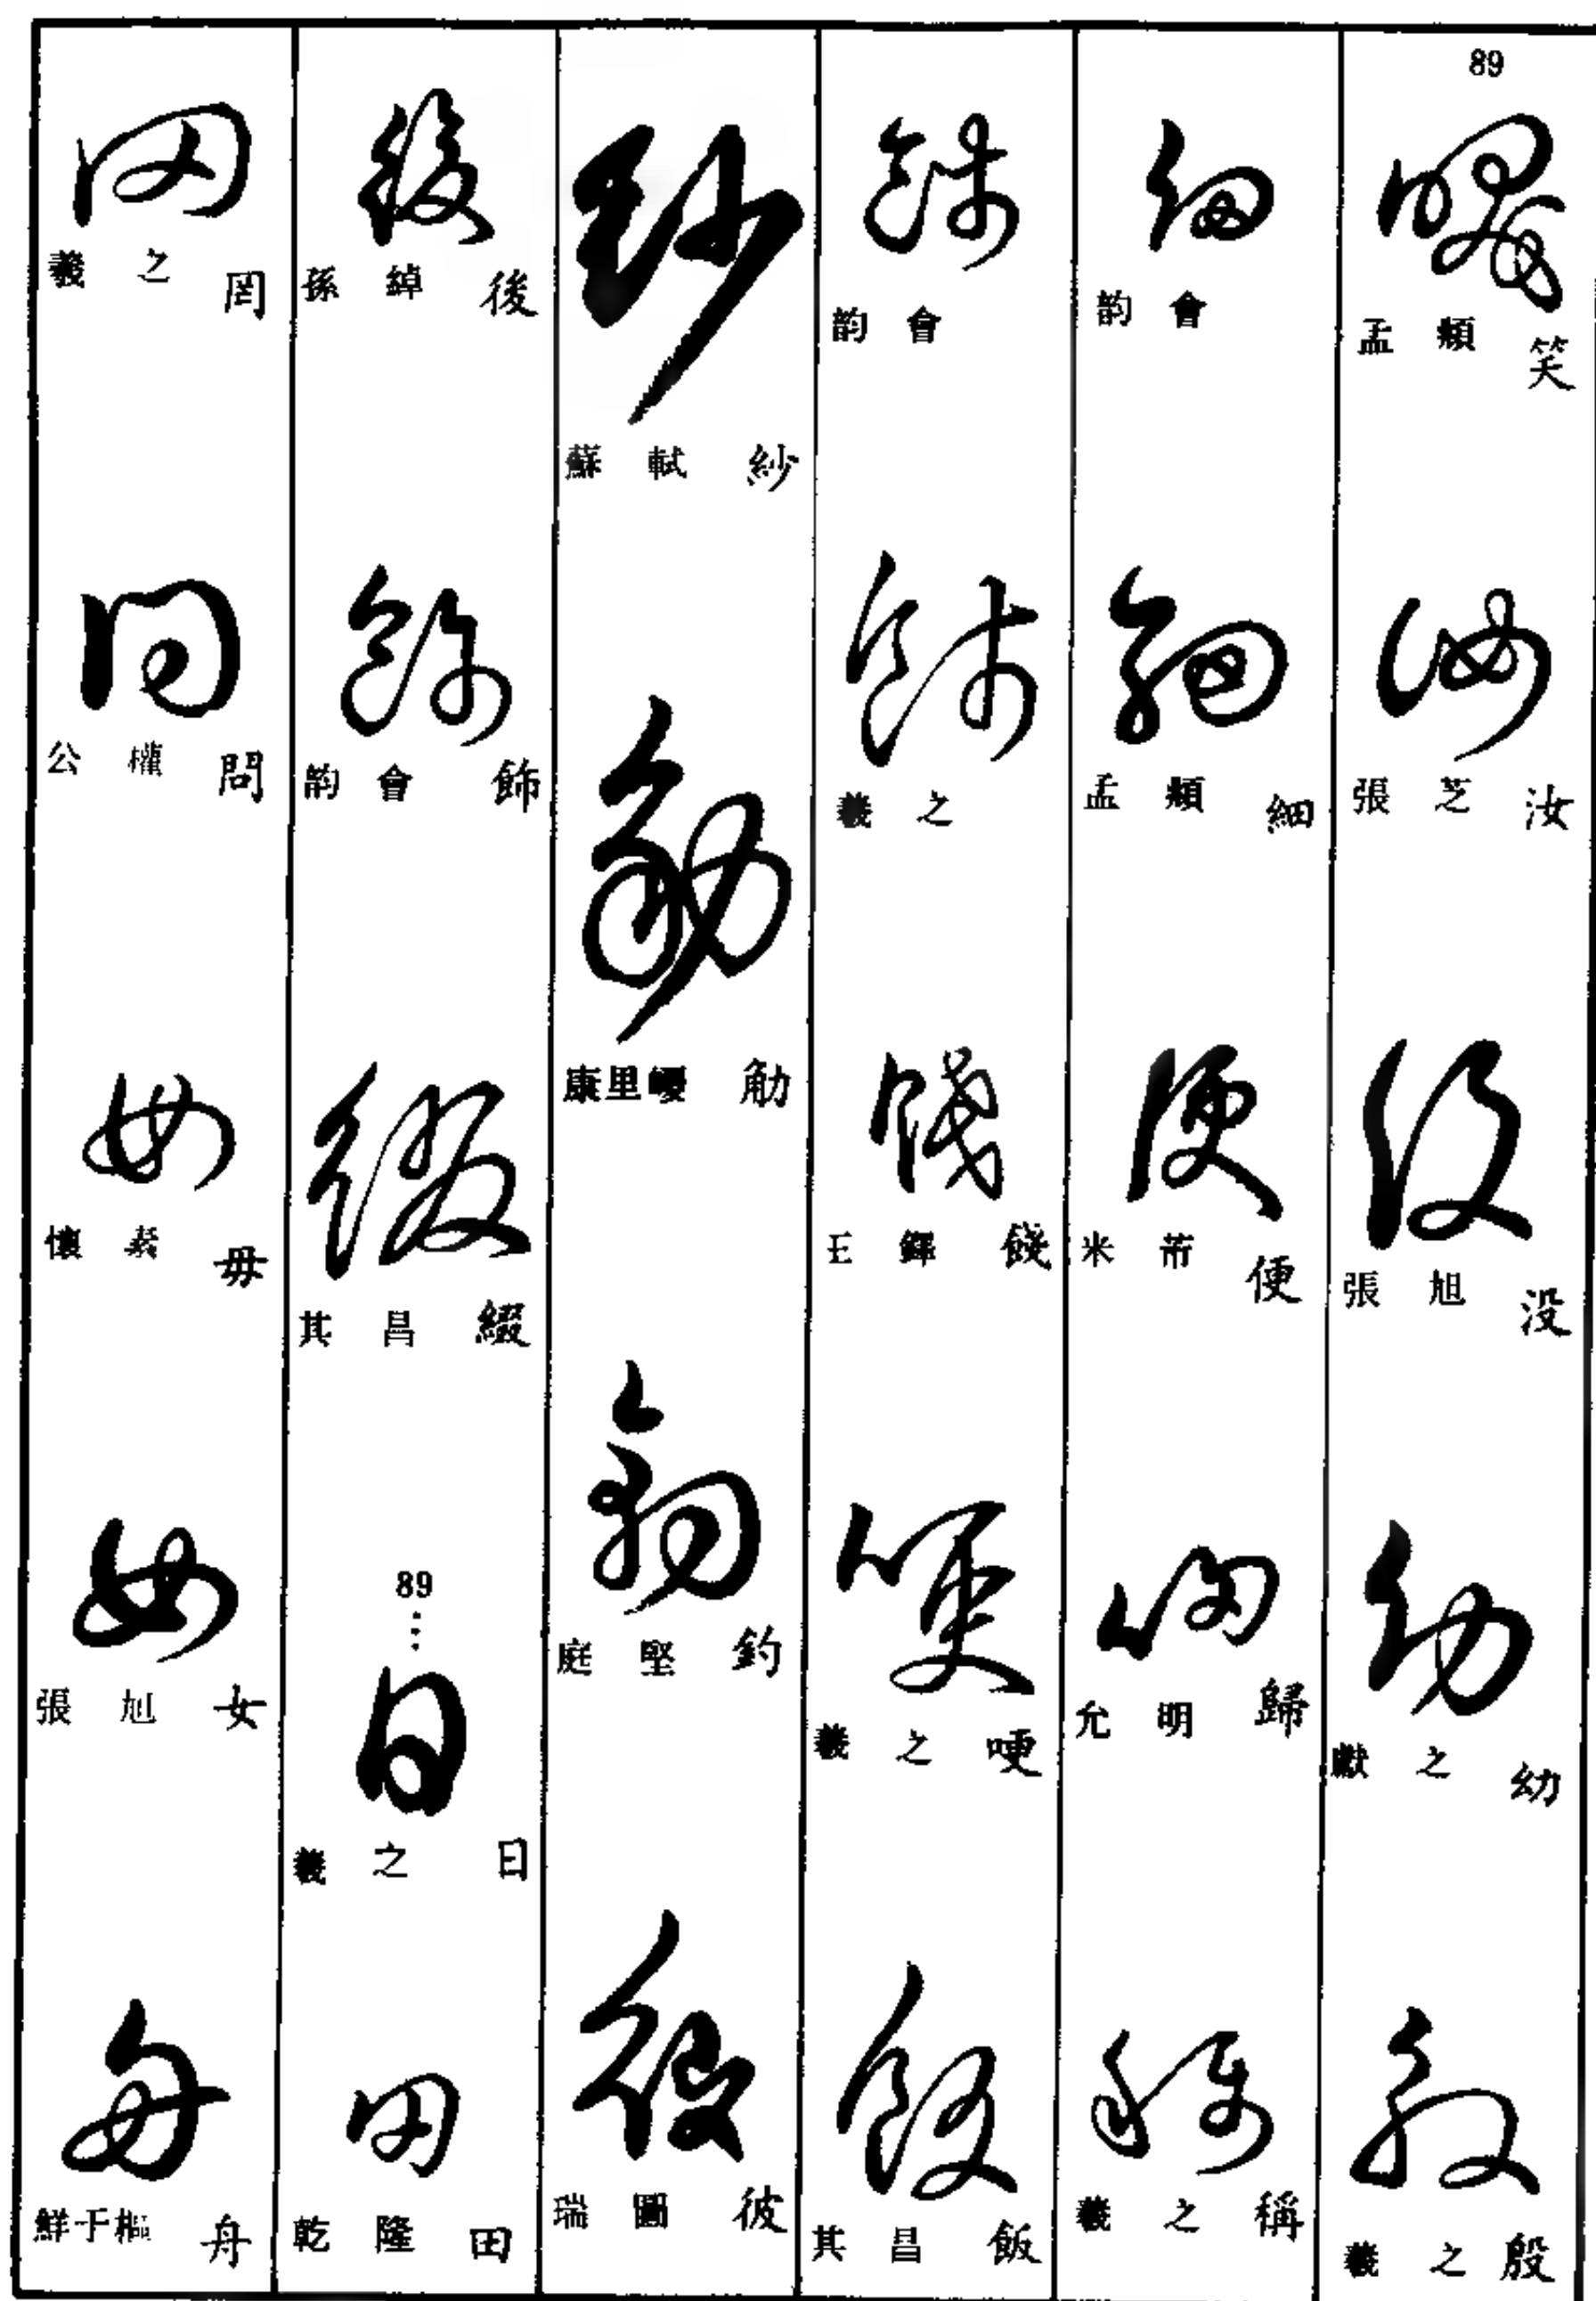 89
孟頫 笑
張芝 汝
張旭 没
獻之 幼
羲之 殷
韵會
孟頫 細
米芾 便
允明 歸
羲之 稱
韵會
羲之
王鐸 餞
羲之 哽
其昌 飯
蘇軾 紗
康里巎 觔
庭堅 釣
瑞圖 彼
孫綽 後
韵會 飾
其昌 綴
89
羲之 日
乾隆 田
羲之 罔
公權 問
懷素 毋
張旭 女
鮮于樞 舟